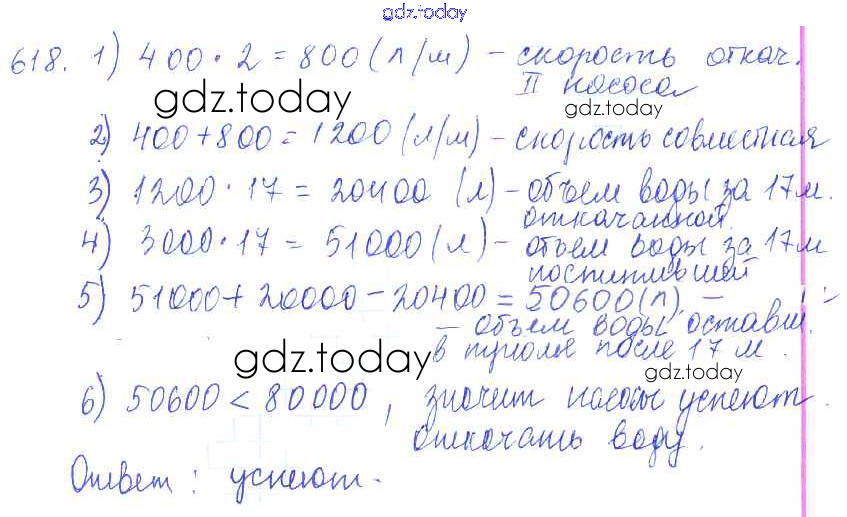 gdz.today
618. 1) 400 · 2 = 800 (л/м) – скорость откач.
II насоса
gdz.today
gdz.today
2) 400 + 800 = 1200 (л/м) – скорость совместная
3) 1200 · 17 = 20400 (л) – объем воды за 17 м.
откачанной
4) 3000 · 17 = 51000 (л) – отьем воды за 17 м
поступившей
5) 51000 + 20000 – 20400 = 50600 (л) –
– объем воды, оставш.
в трюме после 17 м.
gdz.today
gdz.today
6) 50600 < 80000, значит насосы успеют
откачать воду.
Ответ: успеют.